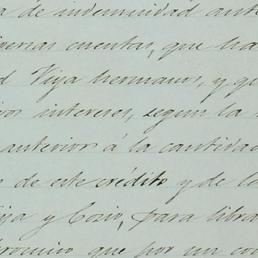 a de indemnidad ante
iversas cuentas, que ha
d Viya hermanos, y qu
vos intereses, segun la
anterior á la cantidad
n de este crédito y de lo
iya y Cosio, para libra
que por un con